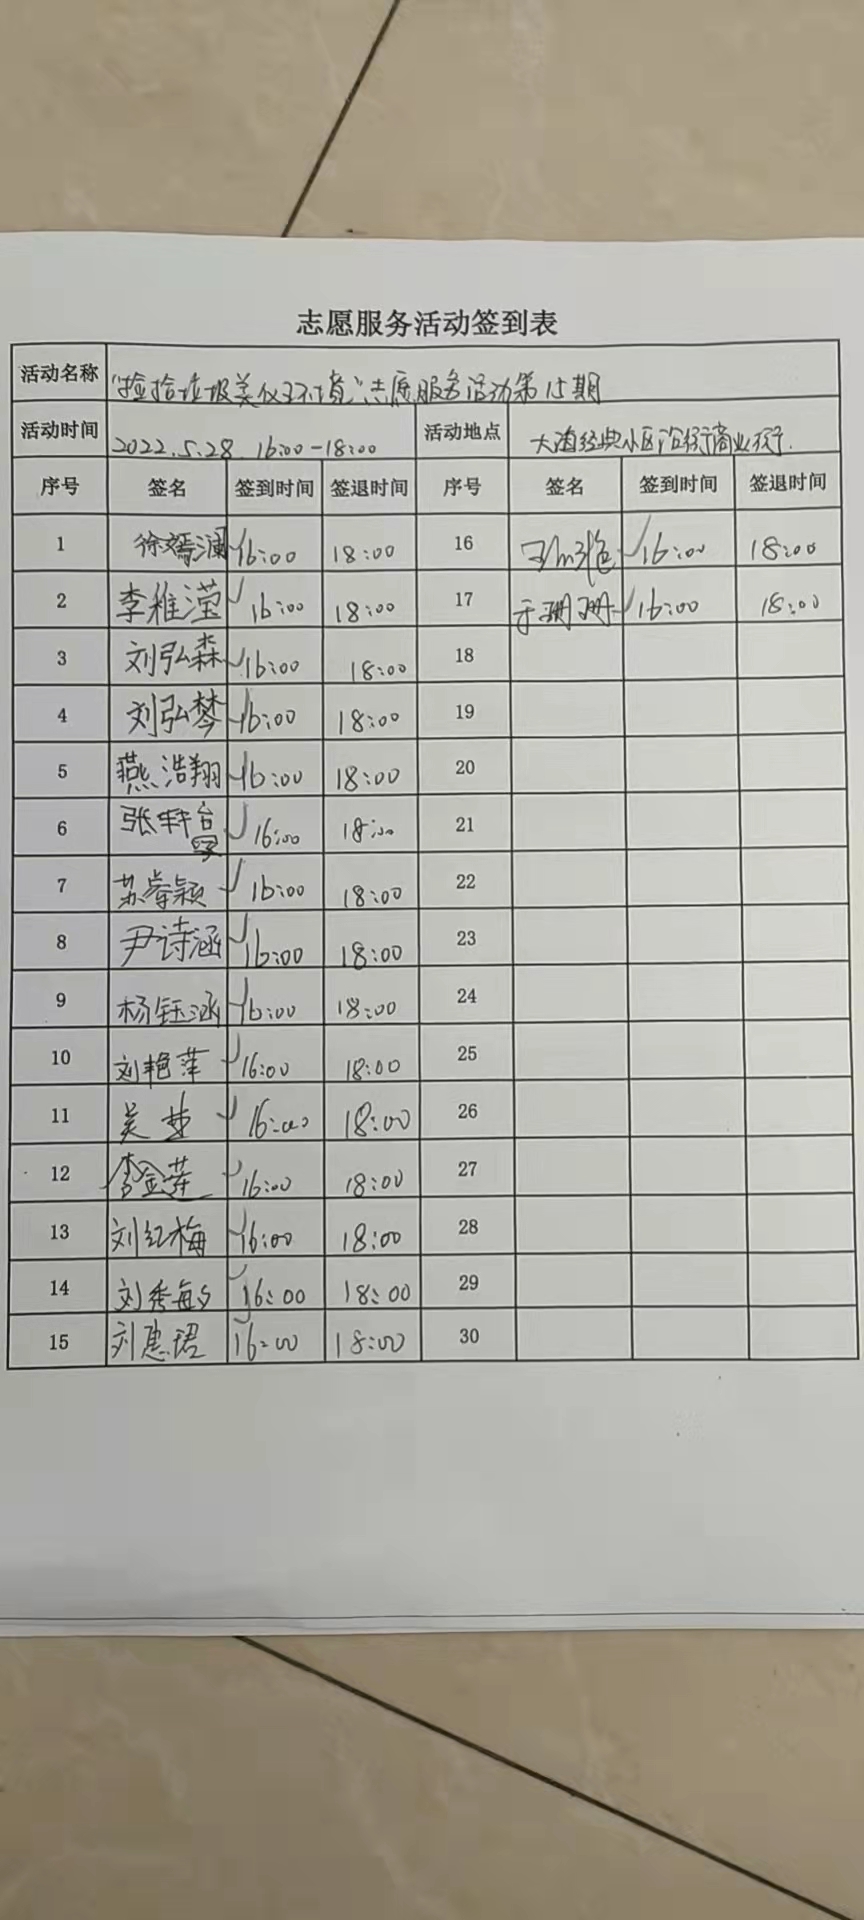 志愿服务活动签到表
活动名称 "捡拾垃圾美化环境"志愿服务活动第15期
活动时间 2022.5.28 16:00-18:00 活动地点 大海经典小区沿街商业街.
序号 签名 签到时间 签退时间 序号 签名 签到时间 签退时间
1 徐嫣澜 16:00 18:00 16 16:00 18:00
2 李稚滢 16:00 18:00 17 于珊珊 16:00 18:00
3 刘弘森 16:00 18:00 18
4 刘弘棽 16:00 18:00 19
5 燕浩翔 16:00 18:00 20
6 张 16:00 18:00 21
7 苏睿颖 16:00 18:00 22
8 尹诗涵 16:00 18:00 23
9 杨钰涵 16:00 18:00 24
10 刘艳萍 16:00 18:00 25
11 吴梦 16:00 18:00 26
12 李金莲 16:00 18:00 27
13 刘红梅 16:00 18:00 28
14 刘秀梅 16:00 18:00 29
15 刘惠珺 16:00 18:00 30